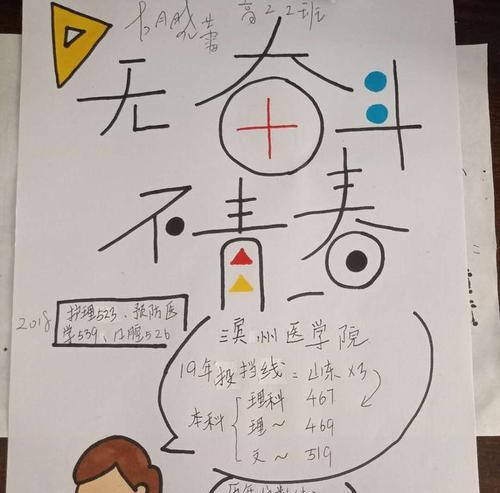 高22班
无奋斗
不青春
2018
护理523、预防医
学539、口腔526
滨州医学院
19年投挡线：山东×3
本科
理科 467
理～ 469
文～ 519